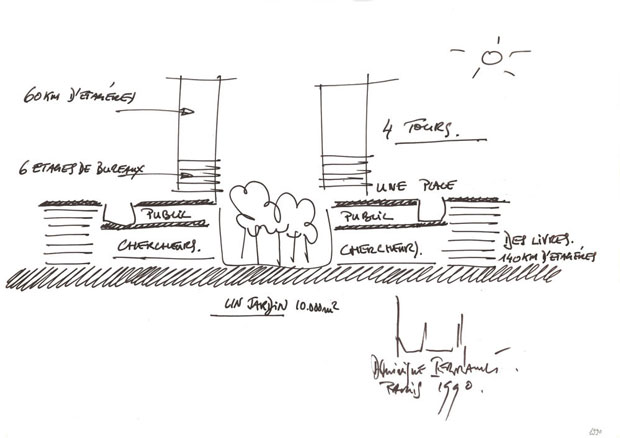 60KM D'ETAGÈRES
4 TOURS.
6 ETAGES DE BUREAUX
UNE PLACE
PUBLIC
PUBLIC
CHERCHEURS.
CHERCHEURS.
DES LIVRES.
140KM D'ETAGÈRES
UN JARDIN 10.000m²
Dominique Perrault.
PARIS 1990.